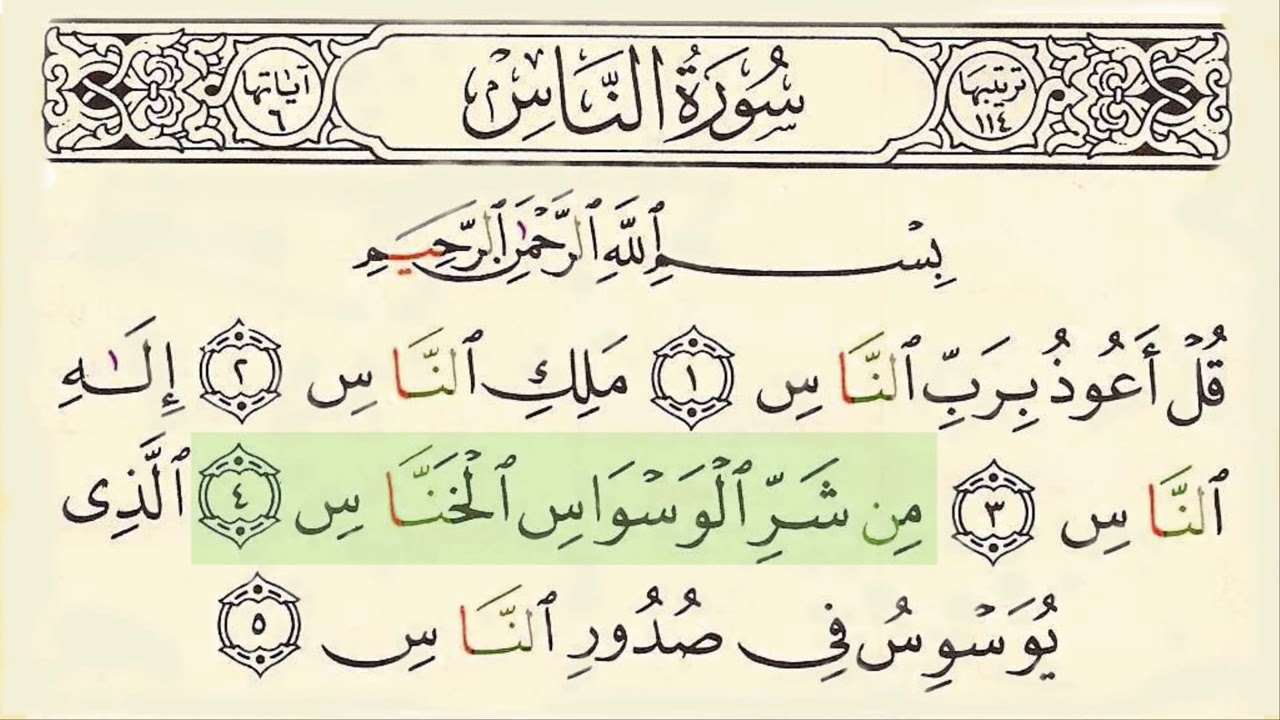 ترتيبها ١١٤ سُورَةُ النَّاسِ آياتها ٦
بِسْمِ ٱللَّهِ ٱلرَّحْمَٰنِ ٱلرَّحِيمِ
قُلْ أَعُوذُ بِرَبِّ ٱلنَّاسِ ١ مَلِكِ ٱلنَّاسِ ٢ إِلَٰهِ
ٱلنَّاسِ ٣ مِن شَرِّ ٱلْوَسْوَاسِ ٱلْخَنَّاسِ ٤ ٱلَّذِى
يُوَسْوِسُ فِى صُدُورِ ٱلنَّاسِ ٥